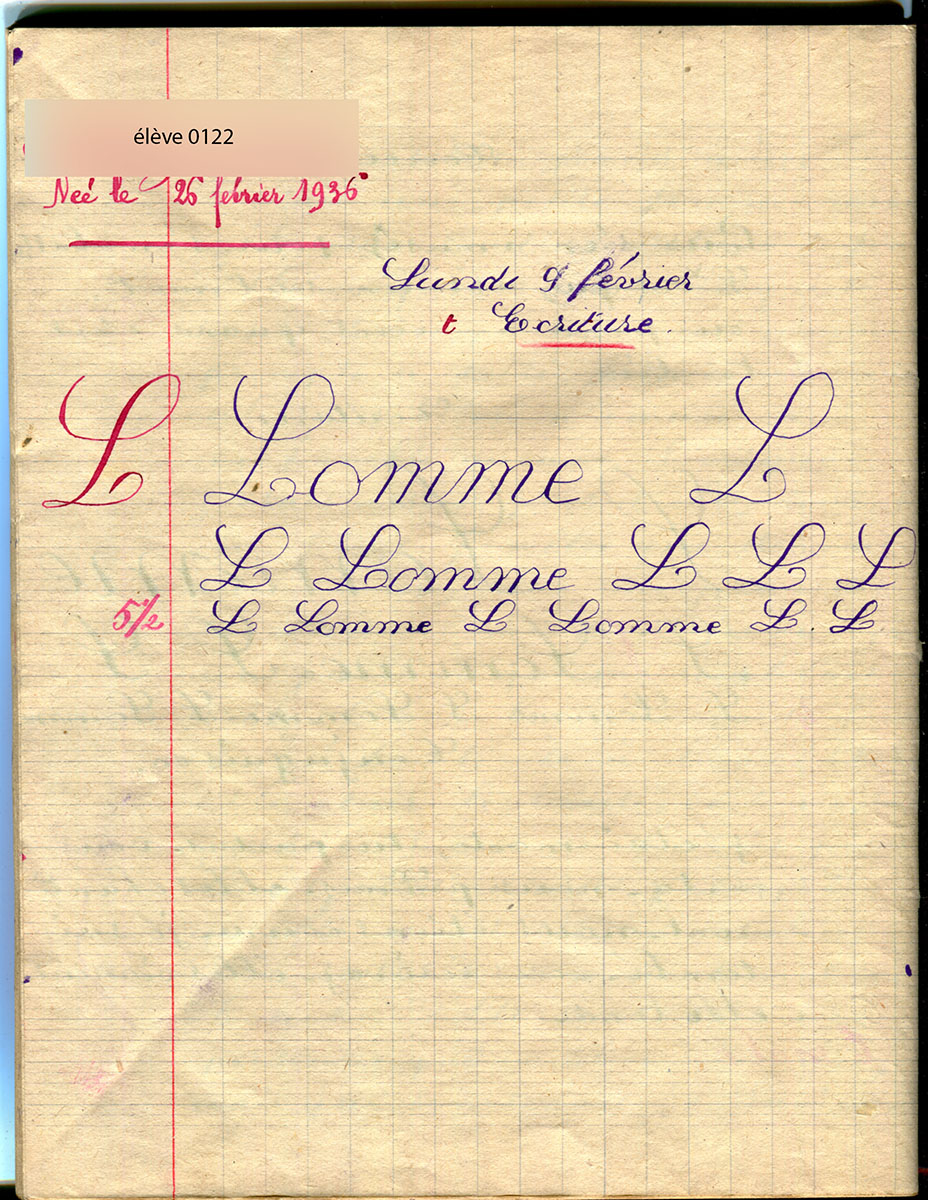 élève 0122
Neé le 26 février 1936
Lundi 9 février
t Ecriture.
L Lomme L
L Lomme L L L
5 1/2 L Lomme L Lomme L. L